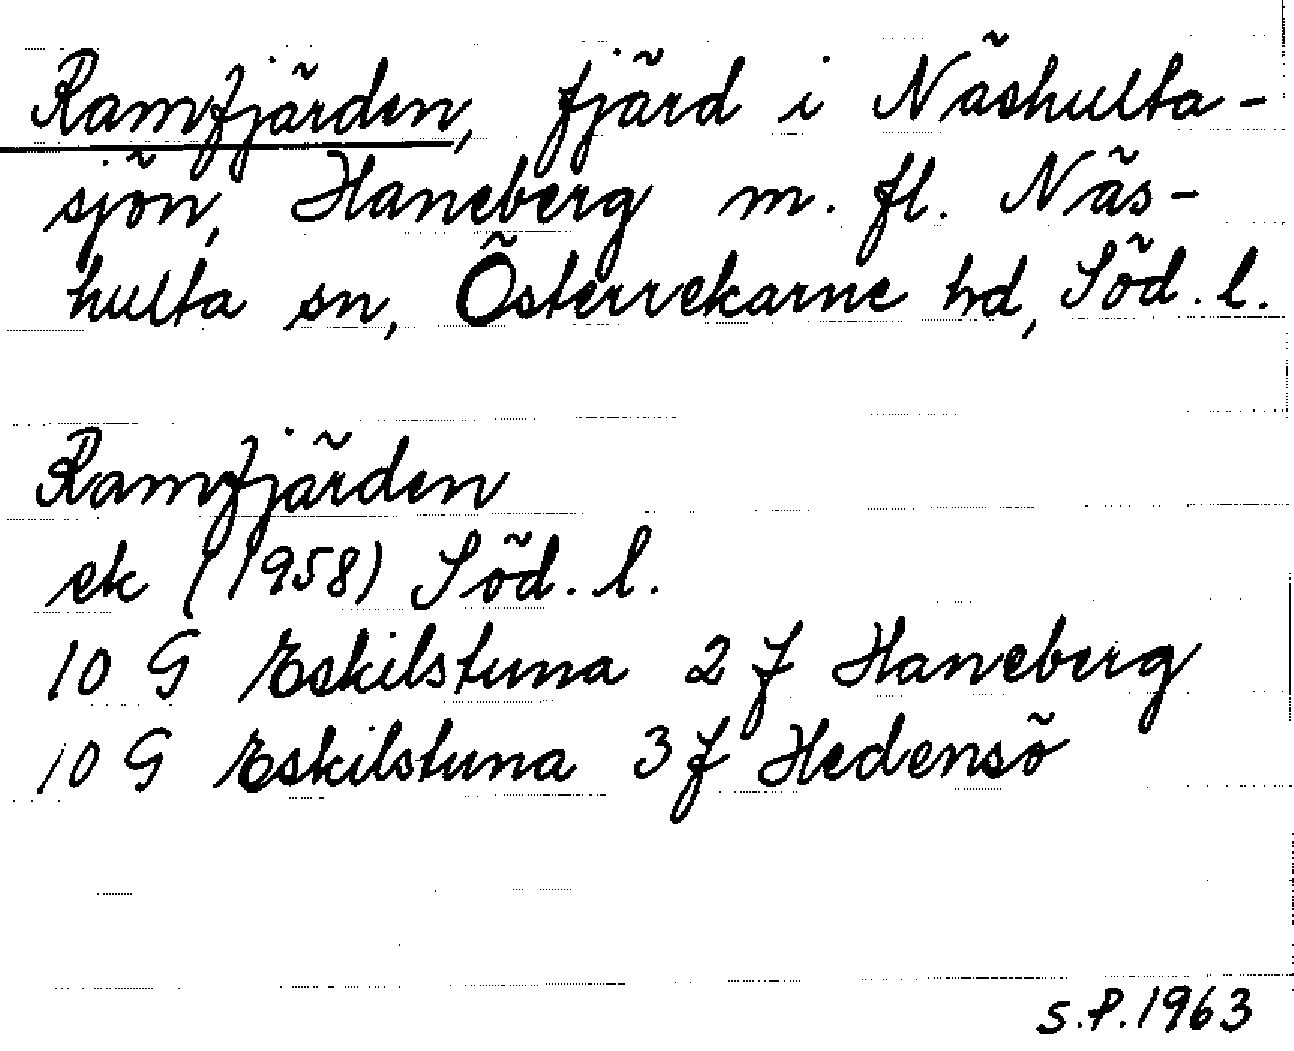 Ramfjärden, fjärd i Näshulta-
sjön, Haneberg m. fl. Näs-
hulta sn, Österrekarne hd, Söd. l.
Ramfjärden
ek (1958) Söd. l.
10 G Eskilstuna 2 f Haneberg
10 G Eskilstuna 3 f Hedensö
S.P. 1963